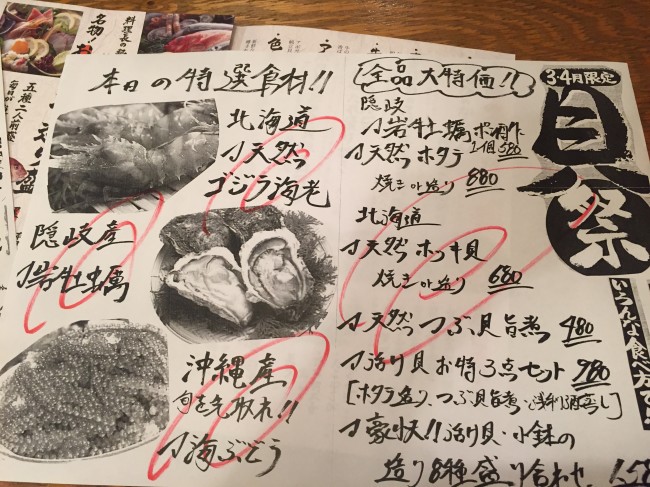 本日の特選食材!!
北海道
天然
ゴジラ海老
隠岐産
岩牡蠣
沖縄産
旬を先取れ!!
海ぶどう
全品大特価!!
隠岐
岩牡蠣ポン酢
1個 580
天然ホタテ
焼き or 造り 880
北海道
天然ホッキ貝
焼き or 造り 680
天然つぶ貝旨煮 480
活り貝お特3点セット 980
[ホタテ造り、つぶ貝旨煮・浅利酒蒸し]
豪快!! 活り貝・小鉢の
造り8種盛り合わせ
3・4月限定
貝祭
いろんな食べ方で!!
料理長の
名物!
五種二人前
盛
色